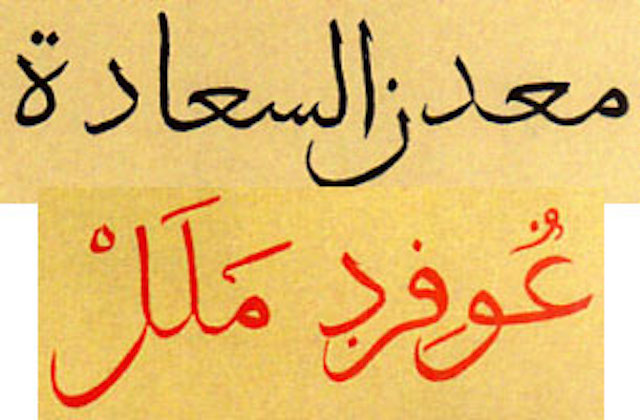 معدن السعادة
عُوفِرد مَلَلْ